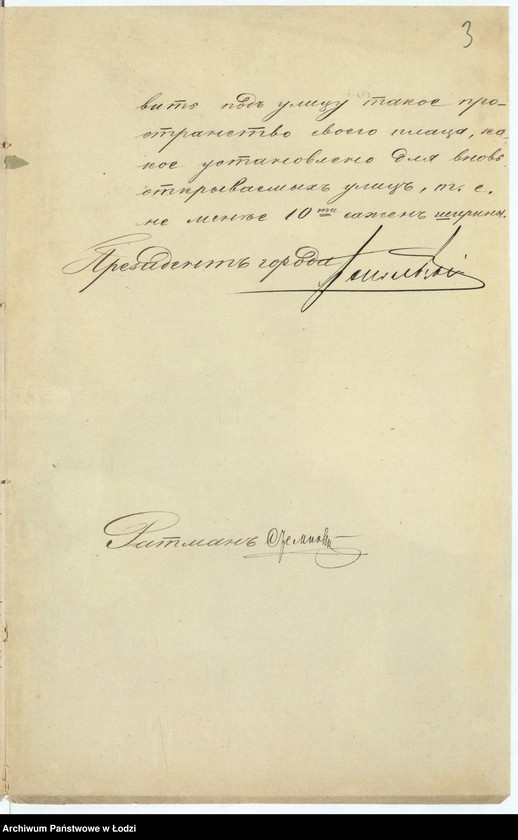 3
вить подъ улицу такое про-
странство своего плаца, ка-
кое установлено для вновь
открываемыхъ улицъ, т. е.
не менѣе 10ти сажень ширины.
Президентъ города
Ратманъ
Archiwum Państwowe w Łodzi